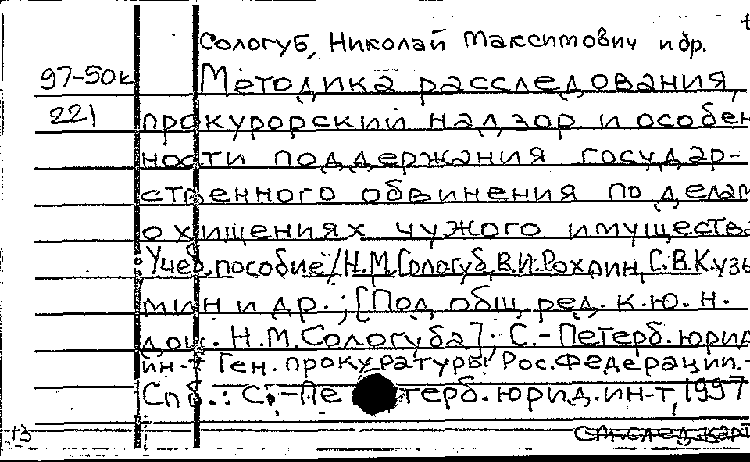 Сологуб, Николай Максимович и др.
97-50к Методика расследования,
221 прокурорский надзор и особен
ности поддержания государ-
ственного обвинения по делам
о хищениях чужого имущества
Учеб. пособие / Н.М. Сологуб, В.И. Рохлин, С.В. Кузь
мин и др. ; [Под общ. ред. к.ю.н.
доц. Н.М. Сологуба]. С.-Петерб. юрид
ин-т Ген. прокуратуры Рос. Федерации. -
Спб. : С.-Петерб. юрид. ин-т, 1997
13 см. след. карт